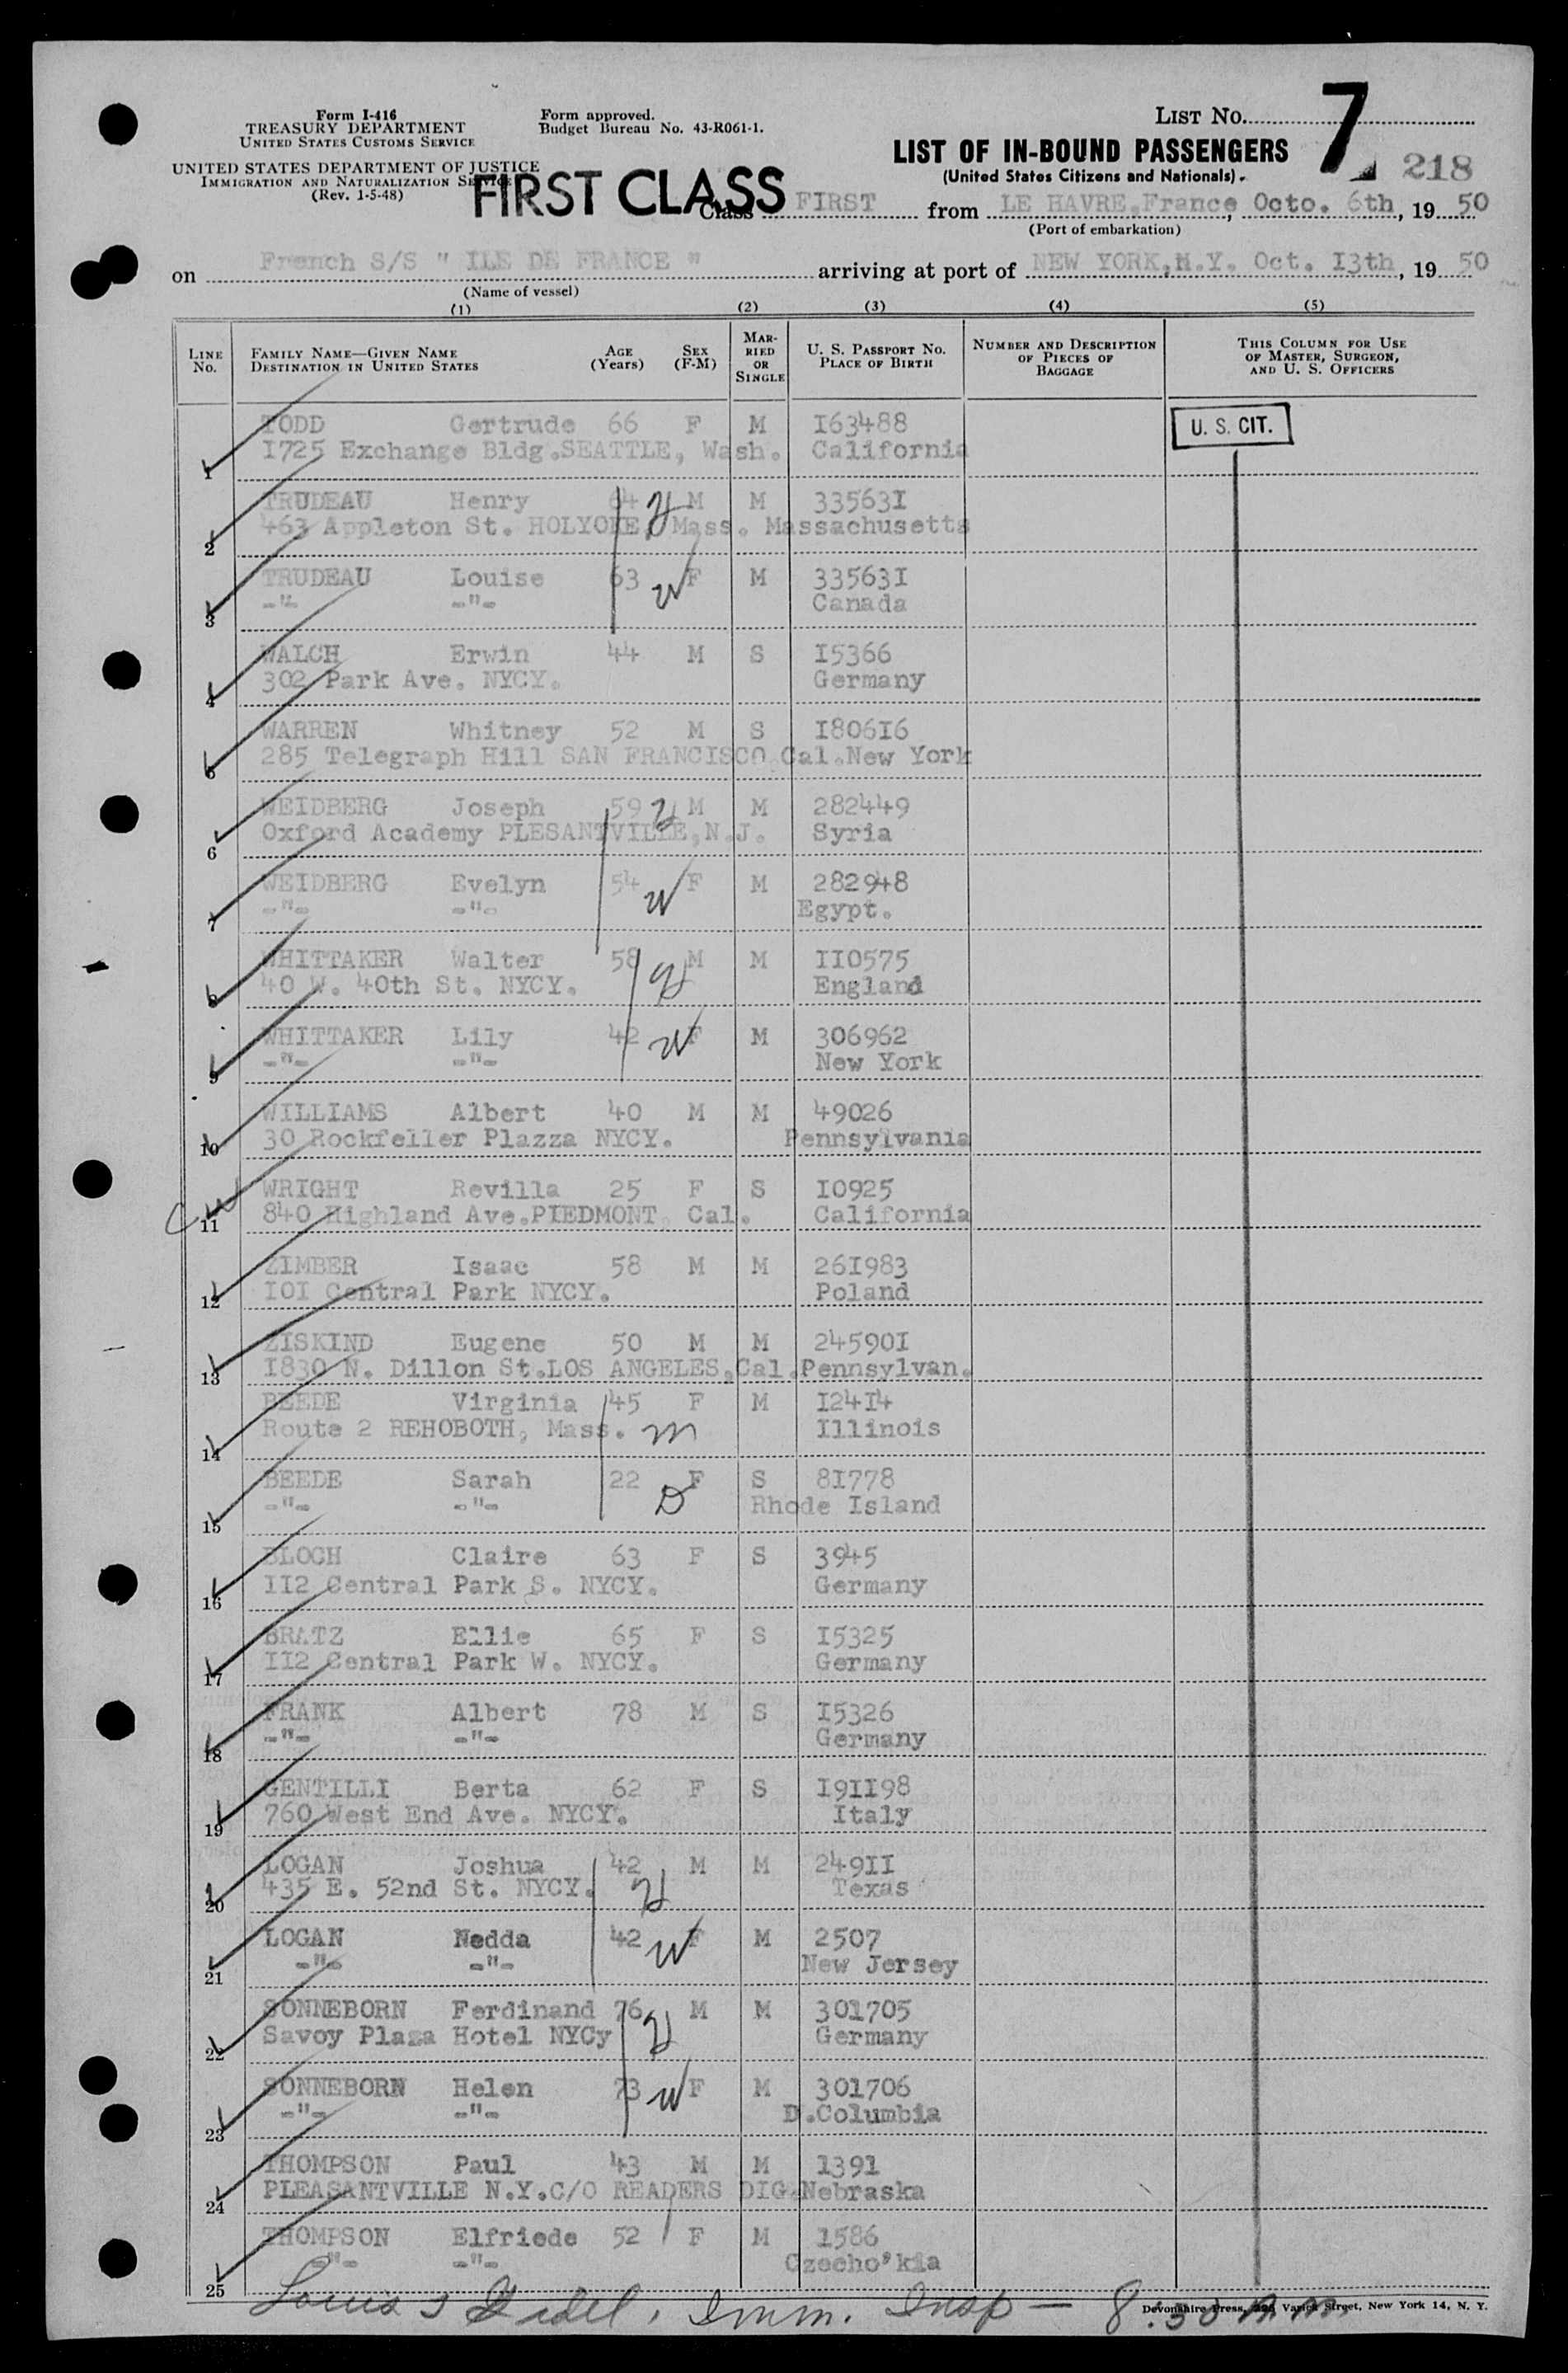 Form I-416
TREASURY DEPARTMENT
UNITED STATES CUSTOMS SERVICE
UNITED STATES DEPARTMENT OF JUSTICE
IMMIGRATION AND NATURALIZATION SERVICE
(Rev. 1-5-48)
Form approved.
Budget Bureau No. 43-R061-1.
FIRST CLASS
LIST No. 7
LIST OF IN-BOUND PASSENGERS
(United States Citizens and Nationals)
218
Class FIRST from LE HAVRE,France, Octo. 6th, 19 50
(Port of embarkation)
on French S/S " ILE DE FRANCE " arriving at port of NEW YORK,N.Y. Oct. I3th, 19 50
(Name of vessel)
(1) (2) (3) (4) (5)
LINE No. FAMILY NAME—GIVEN NAME DESTINATION IN UNITED STATES AGE (Years) SEX (F-M) MARRIED OR SINGLE U. S. PASSPORT No. PLACE OF BIRTH NUMBER AND DESCRIPTION OF PIECES OF BAGGAGE THIS COLUMN FOR USE OF MASTER, SURGEON, AND U. S. OFFICERS
TODD Gertrude 66 F M I63488 U. S. CIT.
1 I725 Exchange Bldg.SEATTLE, Wash. California
TRUDEAU Henry 64 H M M 33563I
2 463 Appleton St. HOLYOKE, Mass. Massachusetts
TRUDEAU Louise 63 W F M 33563I
3 -"- -"- Canada
WALCH Erwin 44 M S I5366
4 302 Park Ave. NYCY. Germany
WARREN Whitney 52 M S I806I6
5 285 Telegraph Hill SAN FRANCISCO Cal.New York
WEIDBERG Joseph 59 H M M 282449
6 Oxford Academy PLESANTVILLE,N.J. Syria
WEIDBERG Evelyn 54 W F M 282948
7 -"- -"- Egypt.
WHITTAKER Walter 58 H M M II0575
8 40 W. 40th St. NYCY. England
WHITTAKER Lily 42 W F M 306962
9 -"- -"- New York
WILLIAMS Albert 40 M M 49026
10 30 Rockfeller Plazza NYCY. Pennsylvania
WRIGHT Revilla 25 F S I0925
11 840 Highland Ave.PIEDMONT, Cal. California
ZIMBER Isaac 58 M M 26I983
12 IOI Central Park NYCY. Poland
ZISKIND Eugene 50 M M 24590I
13 I830 N. Dillon St.LOS ANGELES,Cal.Pennsylvan.
BEEDE Virginia 45 F M I24I4
14 Route 2 REHOBOTH, Mass. m Illinois
BEEDE Sarah 22 D F S 8I778
15 -"- -"- Rhode Island
BLOCH Claire 63 F S 3945
16 II2 Central Park S. NYCY. Germany
BRATZ Ellie 65 F S I5325
17 II2 Central Park W. NYCY. Germany
FRANK Albert 78 M S I5326
18 -"- -"- Germany
GENTILLI Berta 62 F S I9II98
19 760 West End Ave. NYCY. Italy
LOGAN Joshua 42 M M 249II
20 435 E. 52nd St. NYCY. H Texas
LOGAN Nedda 42 W F M 2507
21 -"- -"- New Jersey
SONNEBORN Ferdinand 76 H M M 301705
22 Savoy Plaza Hotel NYCy Germany
SONNEBORN Helen 73 W F M 301706
23 -"- -"- D.Columbia
THOMPSON Paul 43 M M 1391
24 PLEASANTVILLE N.Y.C/O READERS DIG.Nebraska
THOMPSON Elfriede 52 F M 1586
25 -"- -"- Czecho'kia
Louis Imm. Insp — 8:30 A.M.
Devonshire Press, Varick Street, New York 14, N. Y.